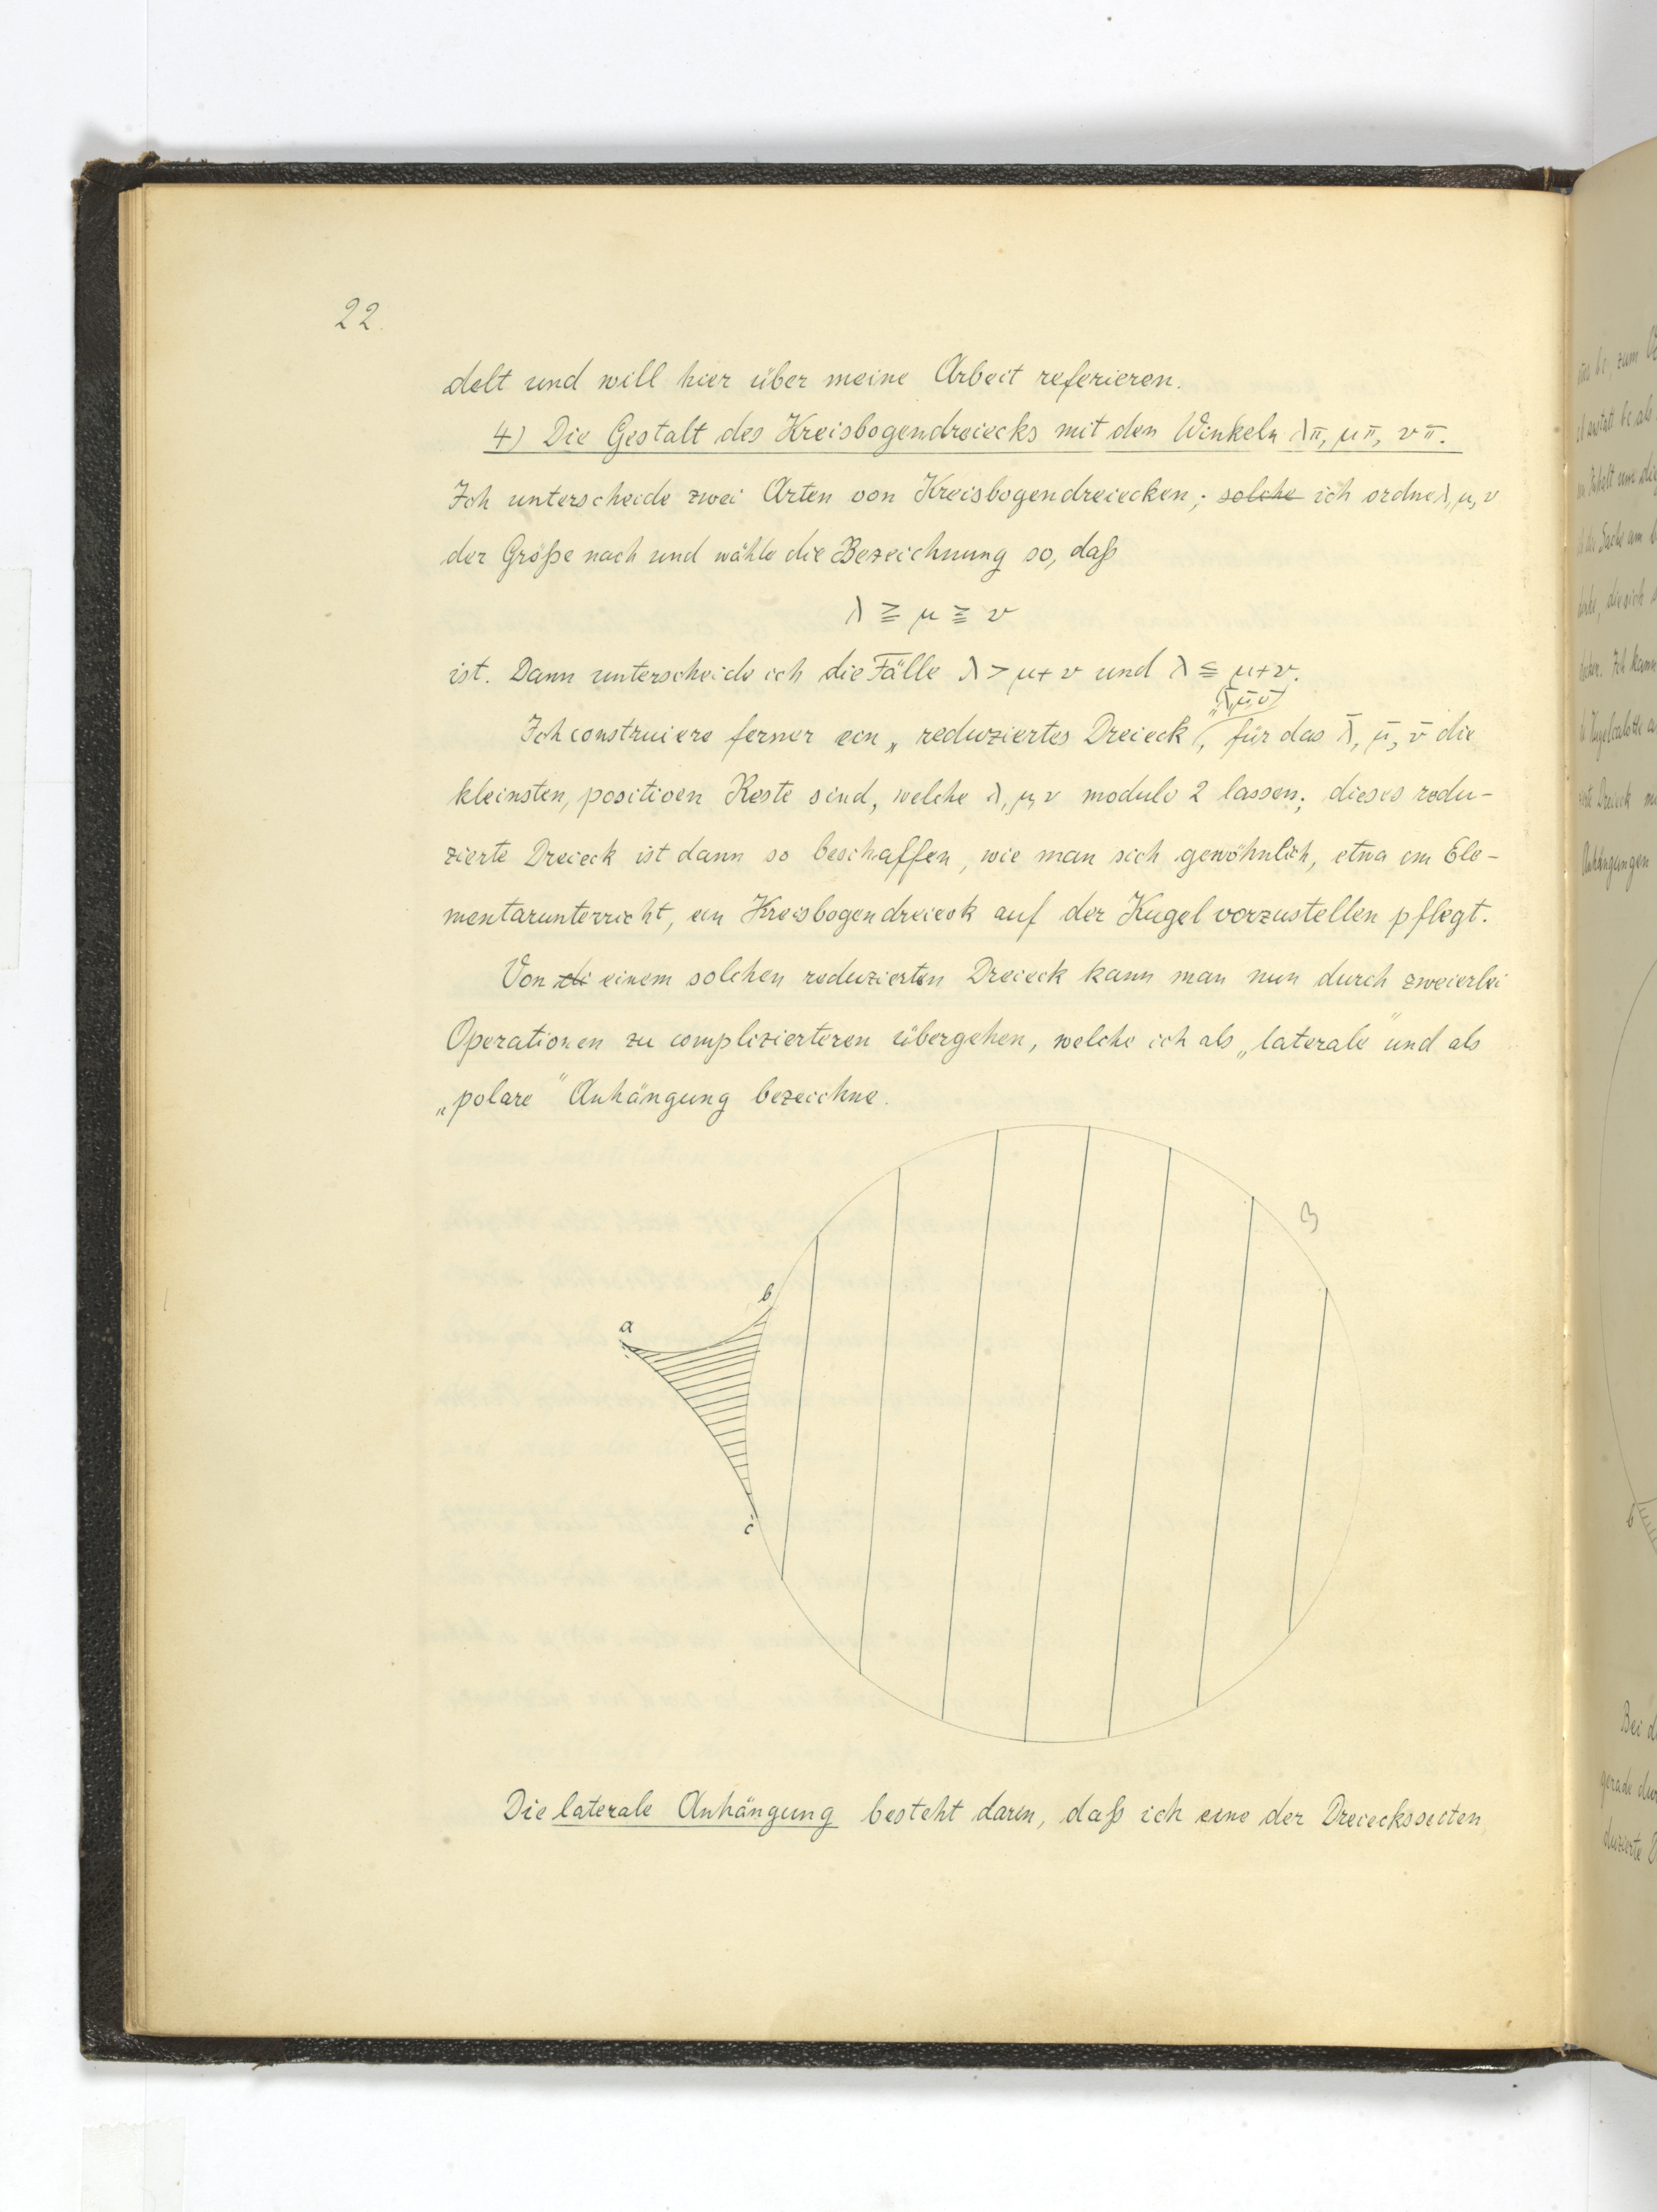 22.
delt und will hier über meine Arbeit referieren.
4) Die Gestalt des Kreisbogendreiecks mit den Winkeln λπ, μπ, νπ.
Ich unterscheide zwei Arten von Kreisbogendreiecken; solche ich ordne λ, μ, ν
der Größe nach und wähle die Bezeichnung so, daß
λ ≧ μ ≧ ν
ist. Dann unterscheide ich die Fälle λ > μ + ν und λ ≦ μ + ν.
(λ̄, μ̄, ν̄)
Ich construiere ferner ein „reduziertes Dreieck", für das λ̄, μ̄, ν̄ die
kleinsten, positiven Reste sind, welche λ, μ, ν modulo 2 lassen; dieses redu-
zierte Dreieck ist dann so beschaffen, wie man sich gewöhnlich, etwa im Ele-
mentarunterricht, ein Kreisbogendreieck auf der Kugel vorzustellen pflegt.
Von einem solchen reduzierten Dreieck kann man nun durch zweierlei
Operationen zu complizierteren übergehen, welche ich als „laterale" und als
„polare" Anhängung bezeichne.
b
a
c
Die laterale Anhängung besteht darin, daß ich eine der Dreiecksseiten